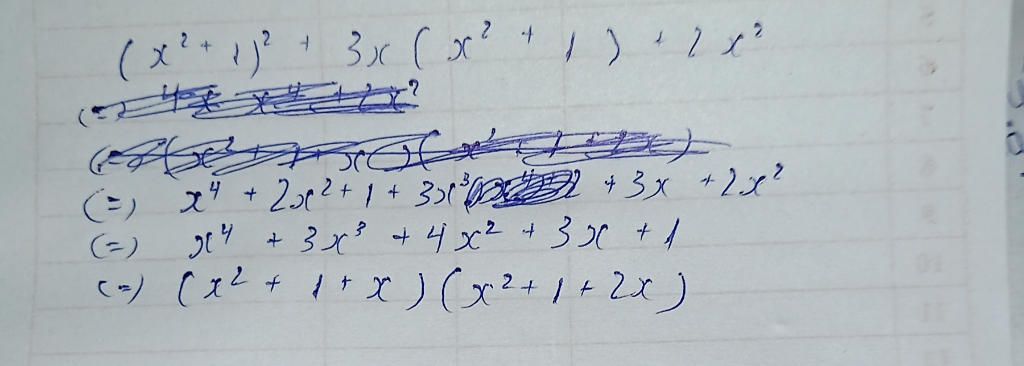 (x² + 1)² + 3x (x² + 1) + 2x²
(=) x⁴ + 2x² + 1 + 3x³ + 3x + 2x²
(=) x⁴ + 3x³ + 4x² + 3x + 1
(=) (x² + 1 + x) (x² + 1 + 2x)